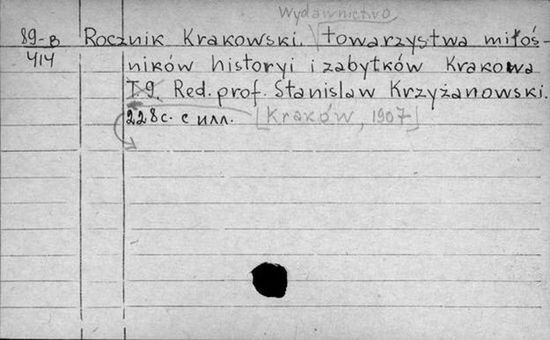 Wydawnictwo
89-в Rocznik Krakowski. towarzystwa miłoś-
414 ników historyi i zabytków Krakowa
T.9. Red. prof. Stanislaw Krzyżanowski.
228с. с илл. [Kraków, 1907]